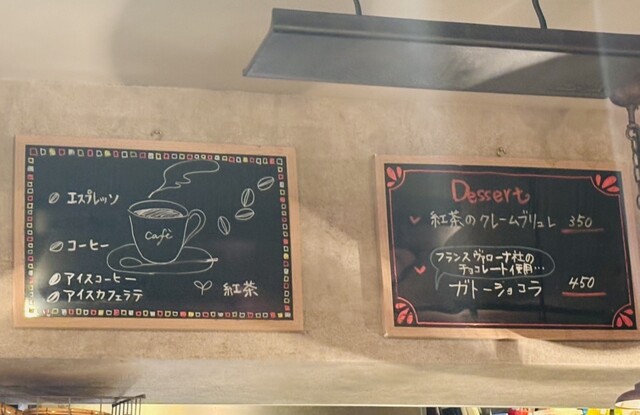 エスプレッソ
コーヒー
アイスコーヒー
アイスカフェラテ
Café
紅茶
Dessert
紅茶のクレームブリュレ 350
フランス ヴァローナ社の
チョコレート使用…
ガトーショコラ 450